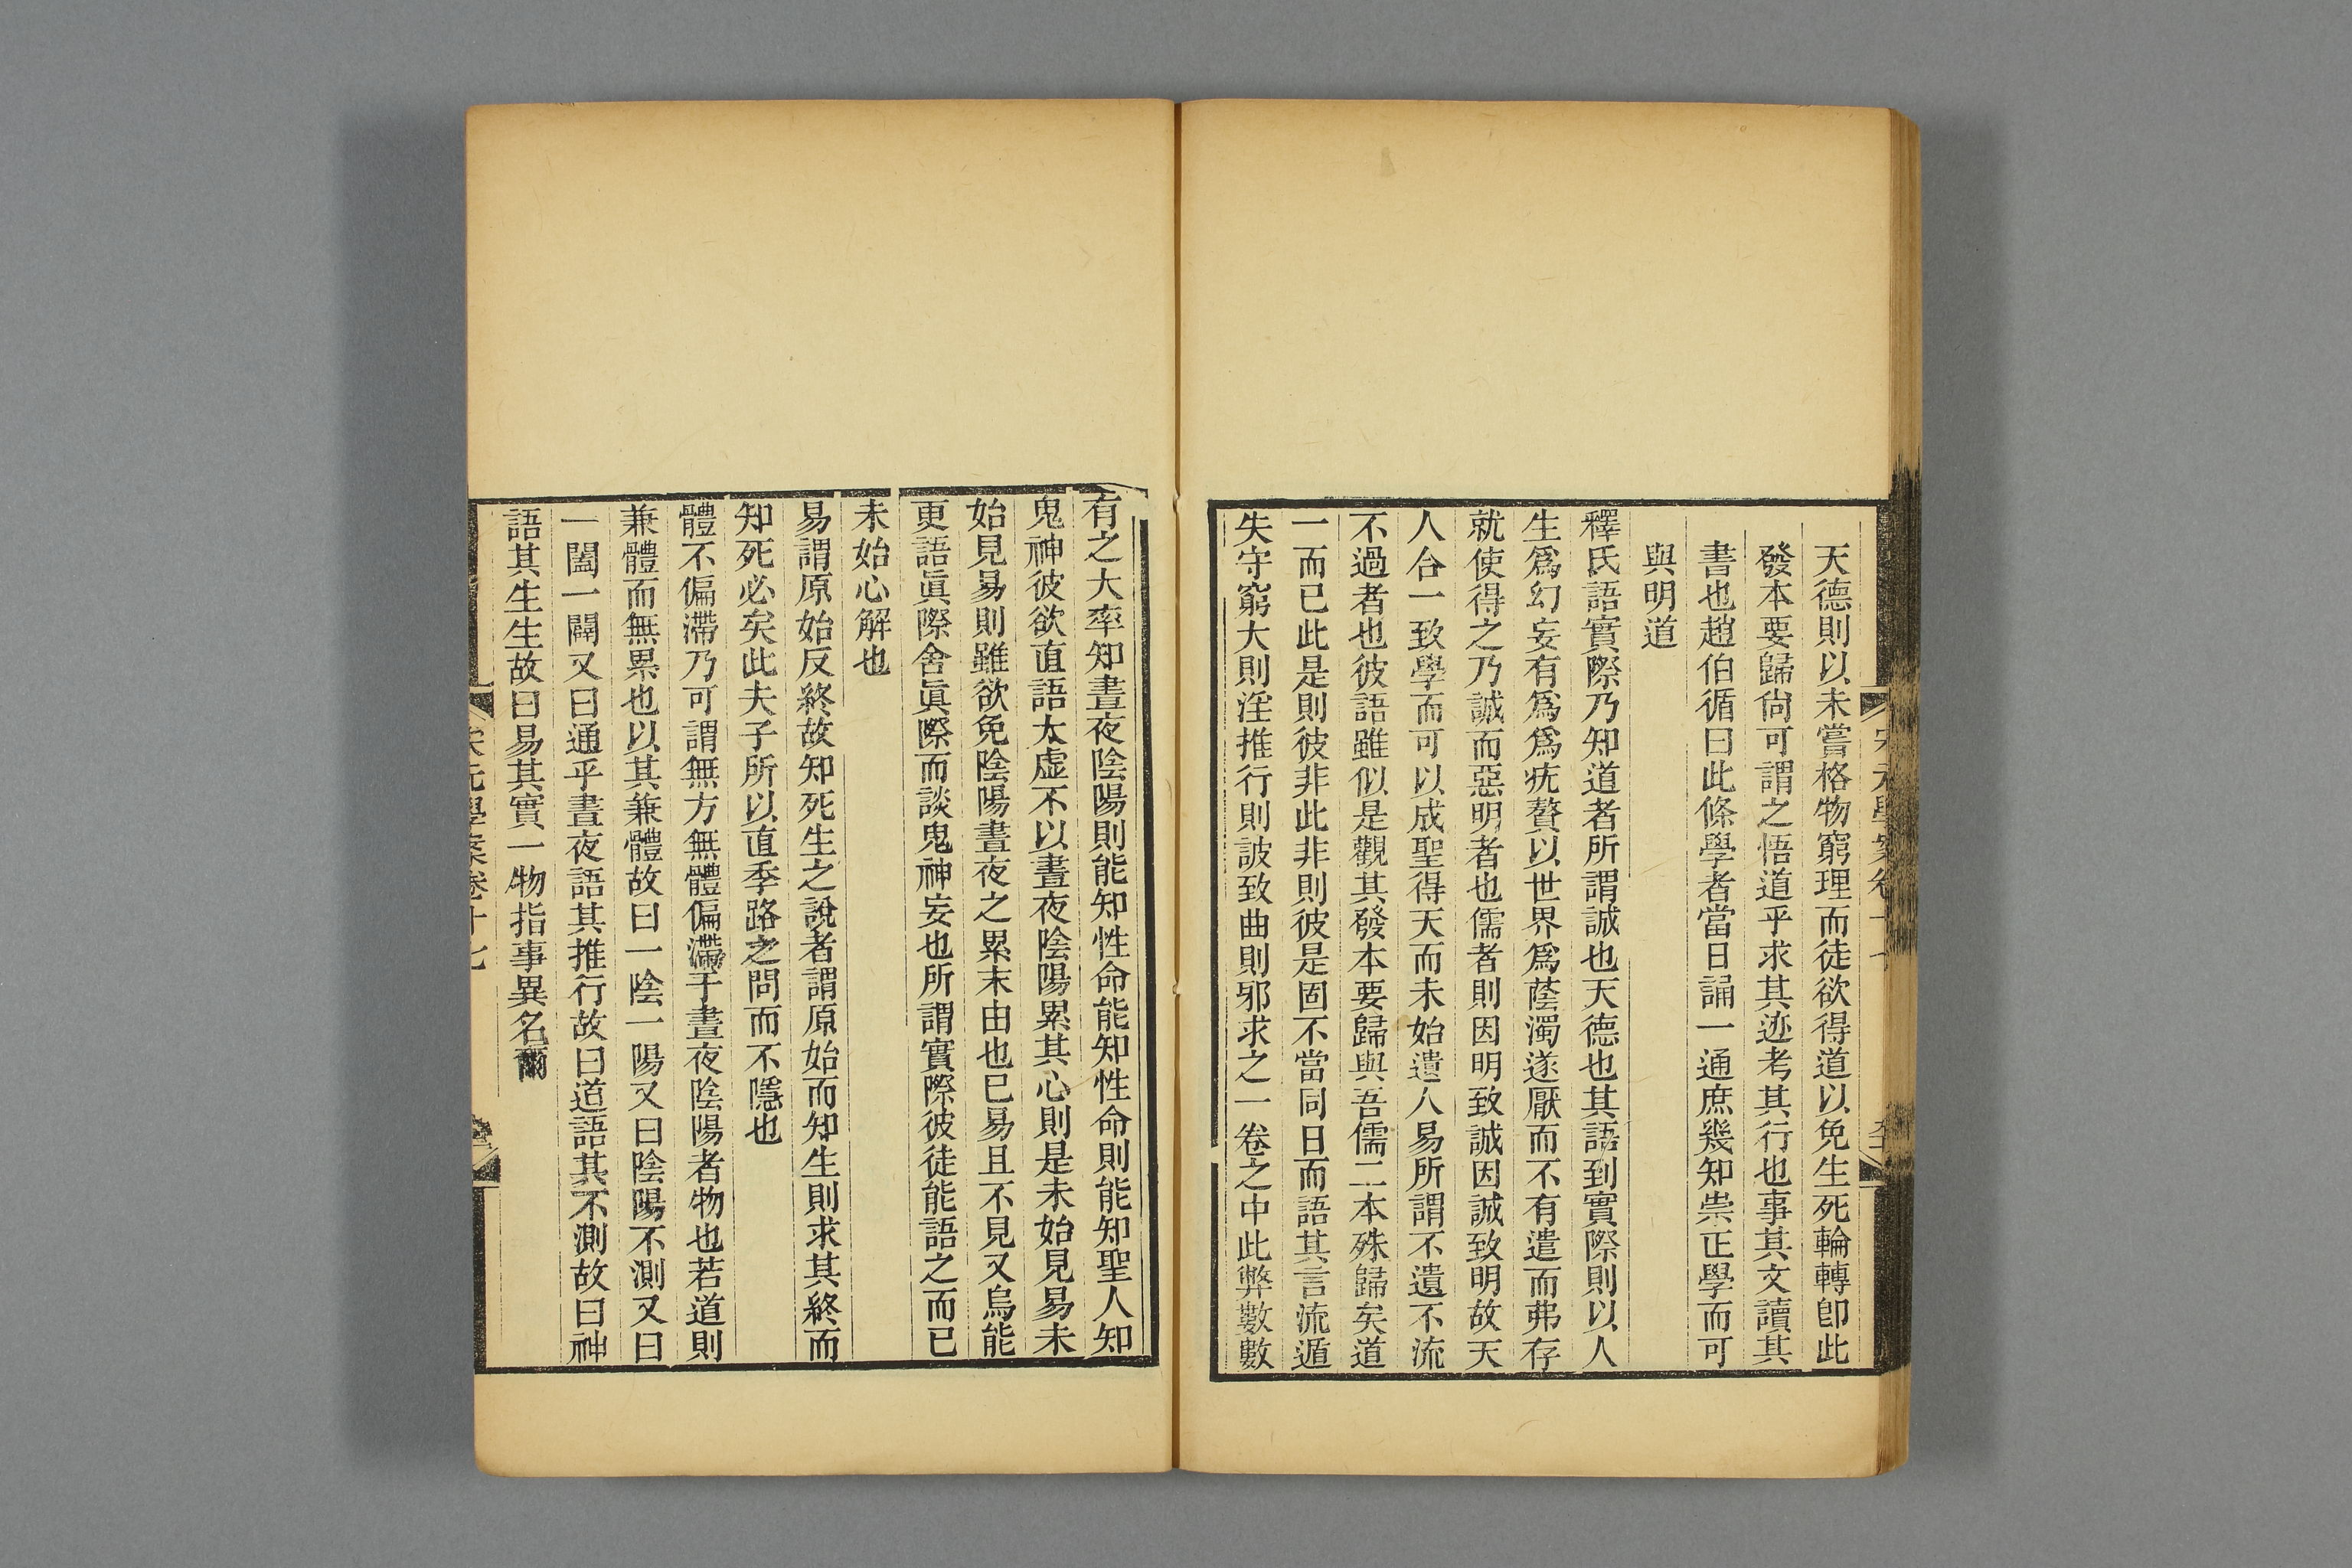 天德則以未嘗格物窮理而徒欲得道以免生死輪轉卽此
發本要歸尙可謂之悟道乎求其迹考其行也事其文讀其
書也趙伯循曰此條學者當日誦一通庶幾知崇正學而可
與明道
釋氏語實際乃知道者所謂誠也天德也其語到實際則以人
生爲幻妄有爲爲疣贅以世界爲蔭濁遂厭而不有遣而弗存
就使得之乃誠而惡明者也儒者則因明致誠因誠致明故天
人合一致學而可以成聖得天而未始遺人易所謂不遺不流
不過者也彼語雖似是觀其發本要歸與吾儒二本殊歸矣道
一而已此是則彼非此非則彼是固不當同日而語其言流遁
失守窮大則淫推行則詖致曲則邪求之一卷之中此弊數數
有之大率知晝夜陰陽則能知性命能知性命則能知聖人知
鬼神彼欲直語太虛不以晝夜陰陽累其心則是未始見易未
始見易則雖欲免陰陽晝夜之累末由也已易且不見又烏能
更語眞際舍眞際而談鬼神妄也所謂實際彼徒能語之而已
未始心解也
易謂原始反終故知死生之說者謂原始而知生則求其終而
知死必矣此夫子所以直季路之問而不隱也
體不偏滯乃可謂無方無體偏滯于晝夜陰陽者物也若道則
兼體而無累也以其兼體故曰一陰一陽又曰陰陽不測又曰
一闔一闢又曰通乎晝夜語其推行故曰道語其不測故曰神
語其生生故曰易其實一物指事異名爾
宋元學案卷十七